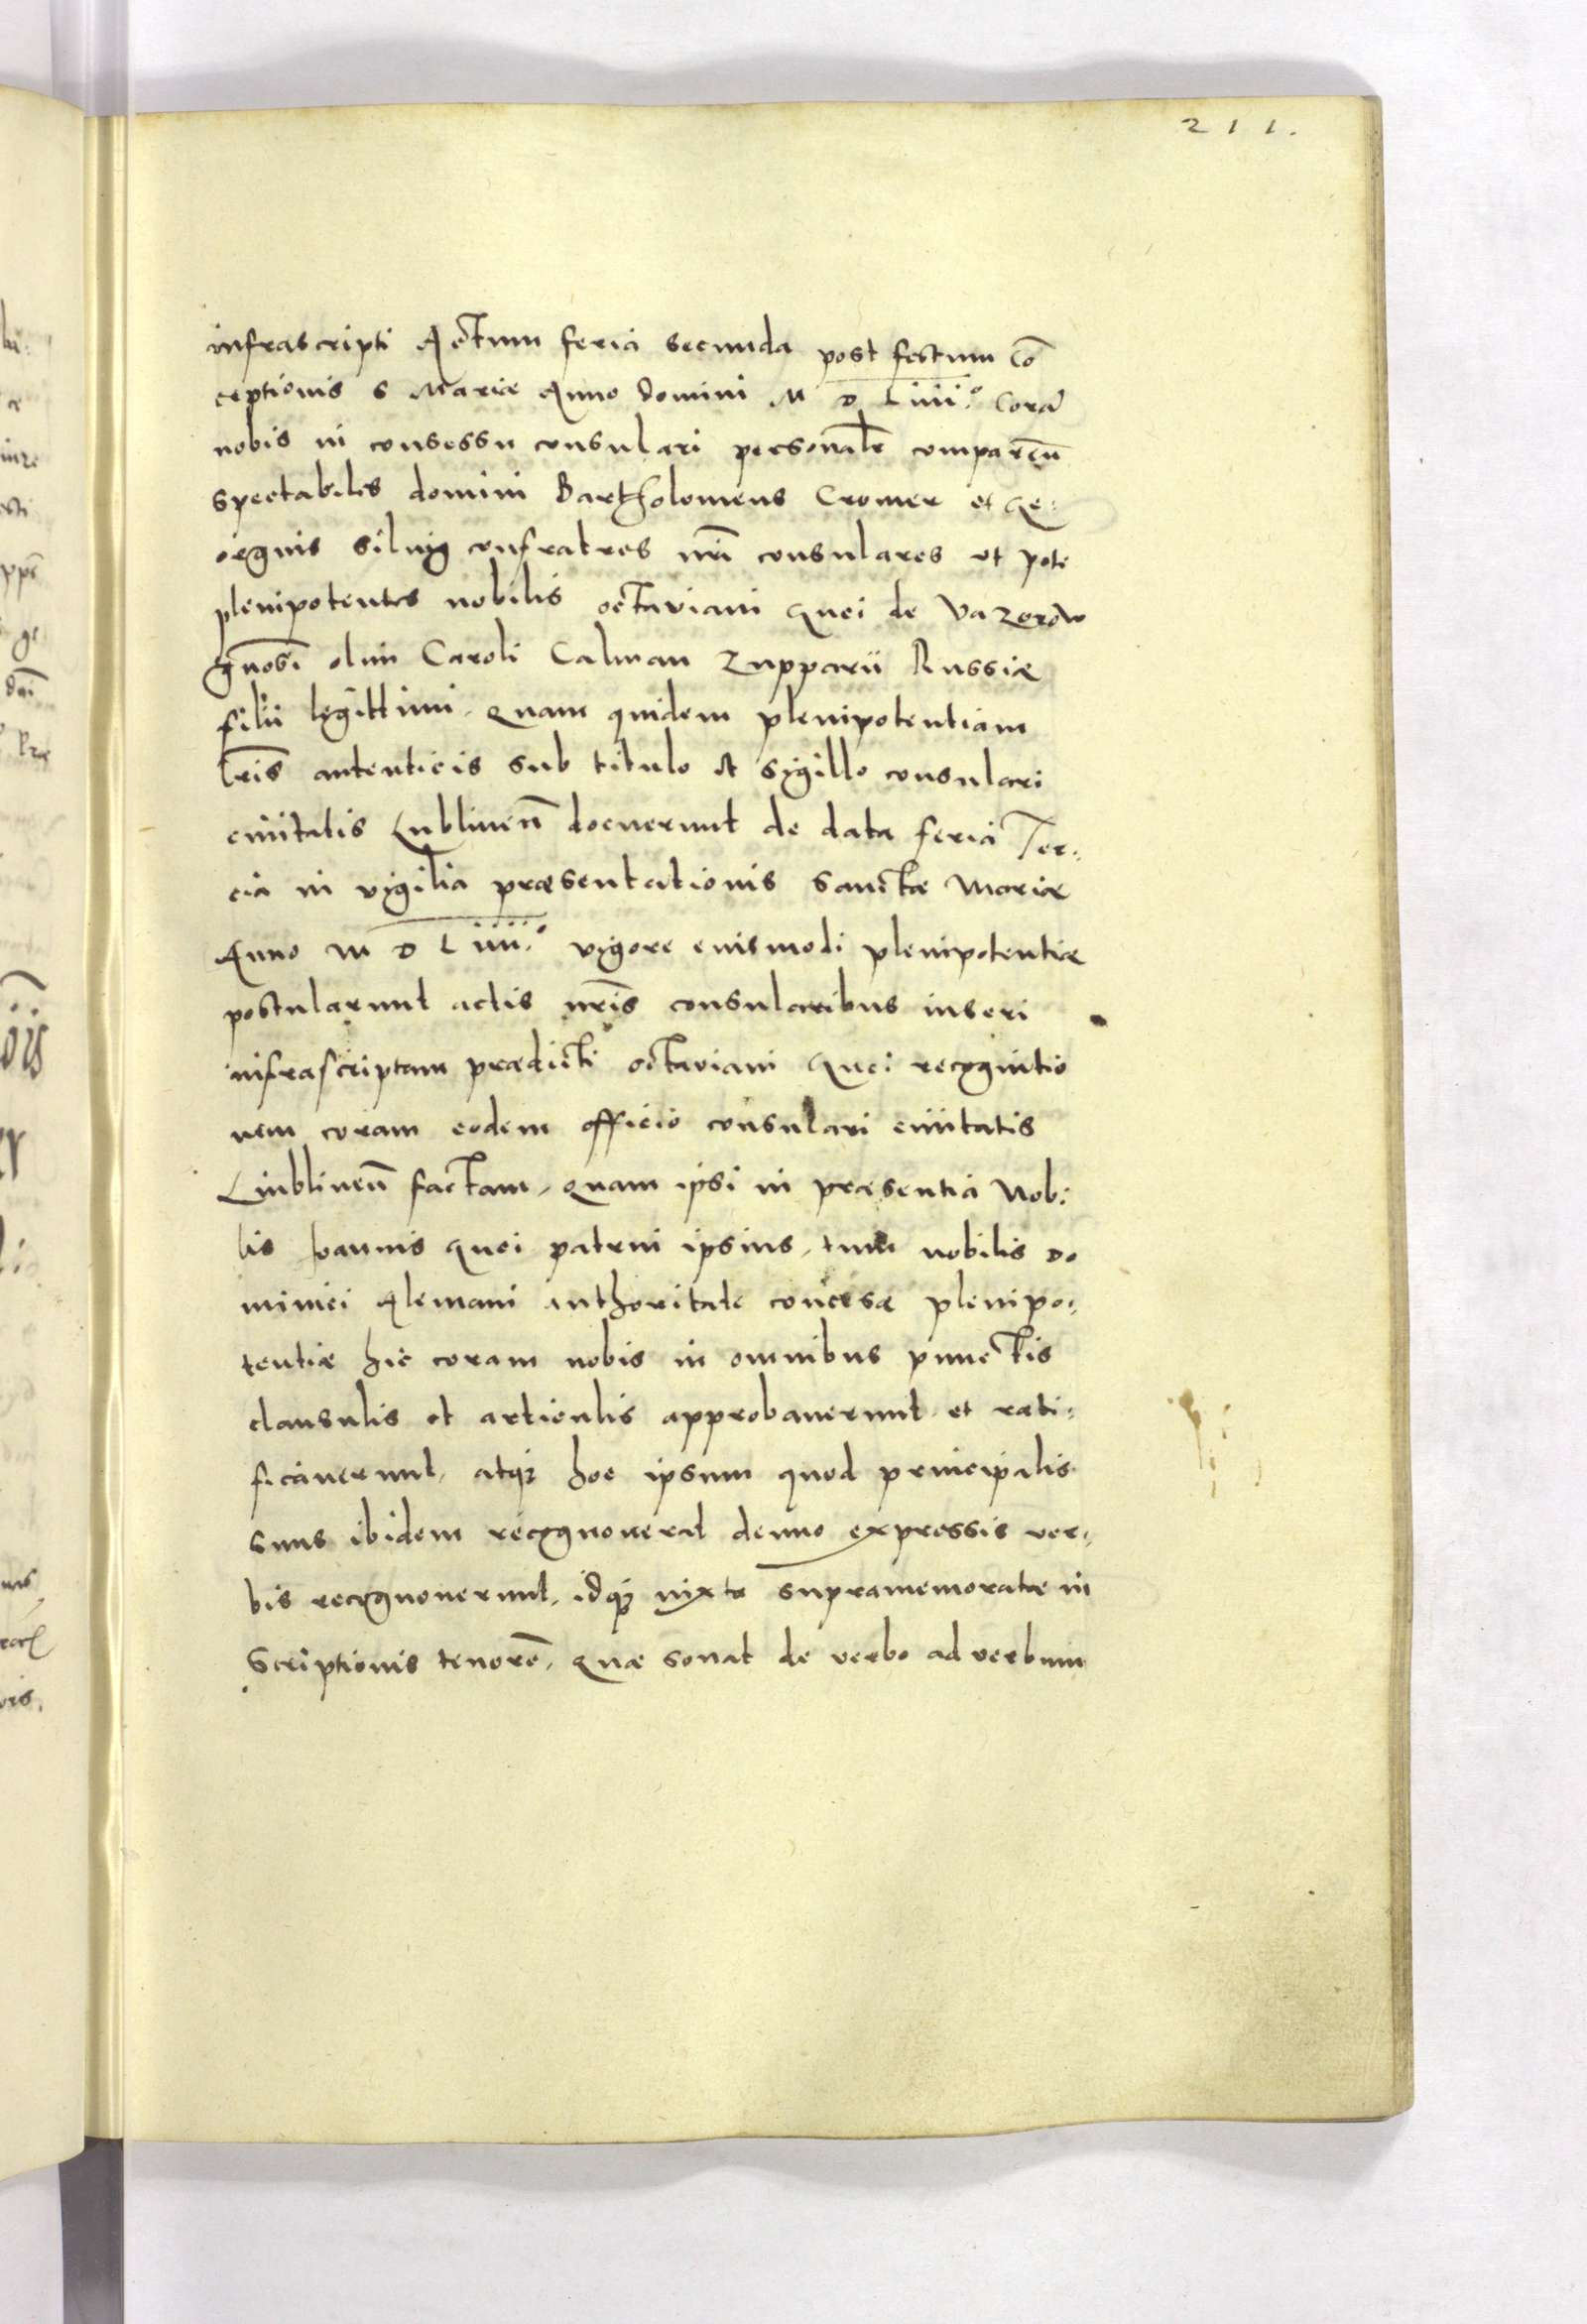 211.
infrascripti Actum feria secunda post festum cō
ceptionis S Mariæ Anno domini M D Liiii.º Corā
nobis in consessu consulari personalr̃ comparẽn
spectabiles domini Bartholomeus Cromer et Ge:
orgius Siluig confratres nr̃i consulares vt pote
plenipotentes nobilis octaviani Quei de Vazerow
gñosi olim Caroli Calman Zupparii Russiæ
filii legittimi, Quam quidem plenipotentiam
lr̃is autenticis sub titulo et sigillo consulari
ciuitatis Lublineñ docuerunt de data feria Ter:
cia in vigilia præsentationis sanctæ Mariæ
Anno M D Liiii.º vigore eiusmodi plenipotentiæ
postularunt actis nr̃is consularibus inseri
infrascriptam prædicti octaviani Quei recognitio
nem coram eodem officio consulari ciuitatis
Lublineñ factam, Quam ipsi in præsentia Nobi
lis Ioannis Quei patrui ipsius, tum nobilis Do
minici Alemani authoritate concessæ plenipo:
tentiæ hic coram nobis in omnibus punctis
clausulis et articulis approbauerunt et rati:
ficauerunt, atq; hoc ipsum quod principalis
suus ibidem recognouerat denuo expressis ver:
bis recognouerunt, idq; iuxta supramemoratæ in
scriptionis tenorē, Quæ sonat de verbo ad verbum